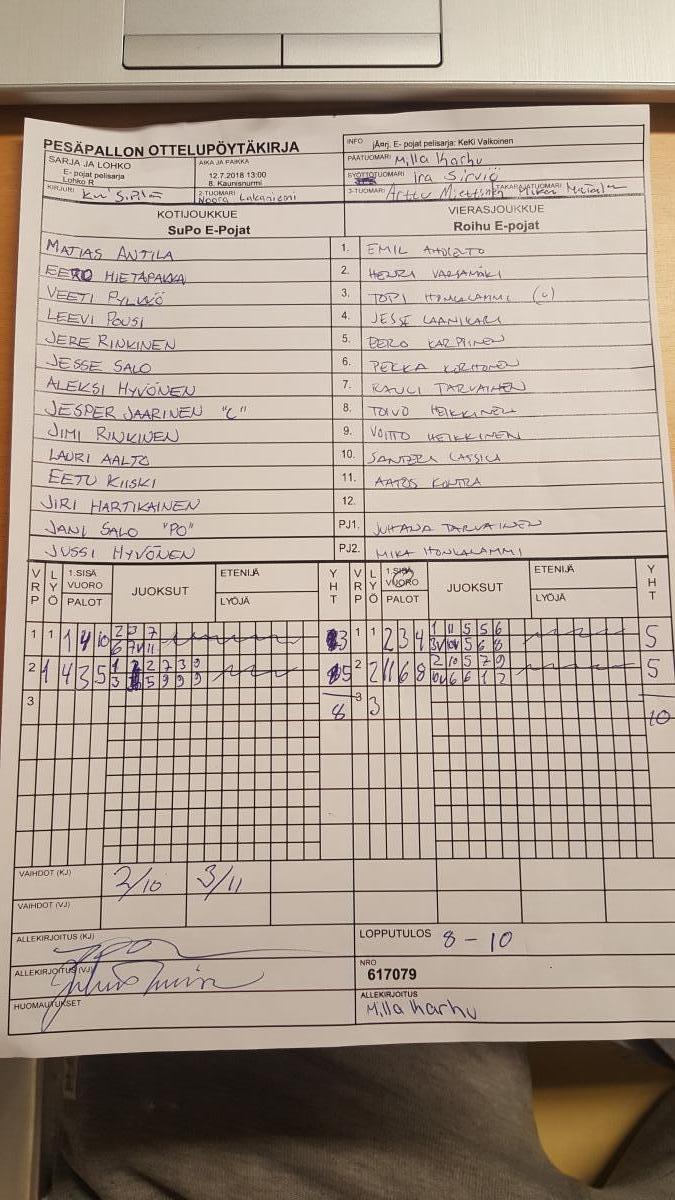 PESÄPALLON OTTELUPÖYTÄKIRJA
INFO jÄorj. E- pojat pelisarja: KeKi Valkoinen
SARJA JA LOHKO
E- pojat pelisarja
Lohko R
AIKA JA PAIKKA
12.7.2018 13:00
8. Kaunisnurmi
PÄÄTUOMARI Milla Karhu
SYÖTTÖTUOMARI Ira Sirviö
KIRJURI
2-TUOMARI
Noora Lakaniemi
3-TUOMARI Arttu Miettinen TAKARAJATUOMARI
KOTIJOUKKUE
SuPo E-Pojat
VIERASJOUKKUE
Roihu E-pojat
MATIAS ANTILA 1. EMIL
EERO HIETAPAKKA 2. HENRI VARJAMÄKI
VEETI PYLVÖ 3. TOPI HONKALAMMI (c)
LEEVI POUSI 4. JESSE LAANIKARI
JERE RINKINEN 5. EERO KARPPINEN
JESSE SALO 6. PEKKA KORHONEN
ALEKSI HYVÖNEN 7. RAULI TARVAINEN
JESPER JAARINEN "C" 8. TOIVO HEIKKINEN
JIMI RINKINEN 9. VOITTO HEIKKINEN
LAURI AALTO 10. SANTERI LASSILA
EETU KIISKI 11. AATOS KONTRA
JIRI HARTIKAINEN 12.
JANI SALO "PO" PJ1. JUHANA TARVAINEN
JUSSI HYVÖNEN PJ2. MIKA HONKALAMMI
VRP LYÖ 1.SISÄ VUORO PALOT JUOKSUT ETENIJÄ LYÖJÄ YHT VRP LYÖ 1.SISÄ VUORO PALOT JUOKSUT ETENIJÄ LYÖJÄ YHT
1 1 1 4 10 2 3 7 3 1 1 2 3 4 1 11 5 5 6 5
6 7V 11 3V 10V 5 6 8
2 1 4 3 5 1 2 2 7 3 9 5 2 2 11 6 8 2 10 5 7 9 5
3 5 9 9 9 10V 6 6 1 2
3 8 3 3 10
VAIHDOT (KJ) 2/10 3/11
VAIHDOT (VJ)
ALLEKIRJOITUS (KJ)
LOPPUTULOS 8 - 10
ALLEKIRJOITUS (VJ)
NRO
617079
HUOMAUTUKSET
ALLEKIRJOITUS
Milla Karhu